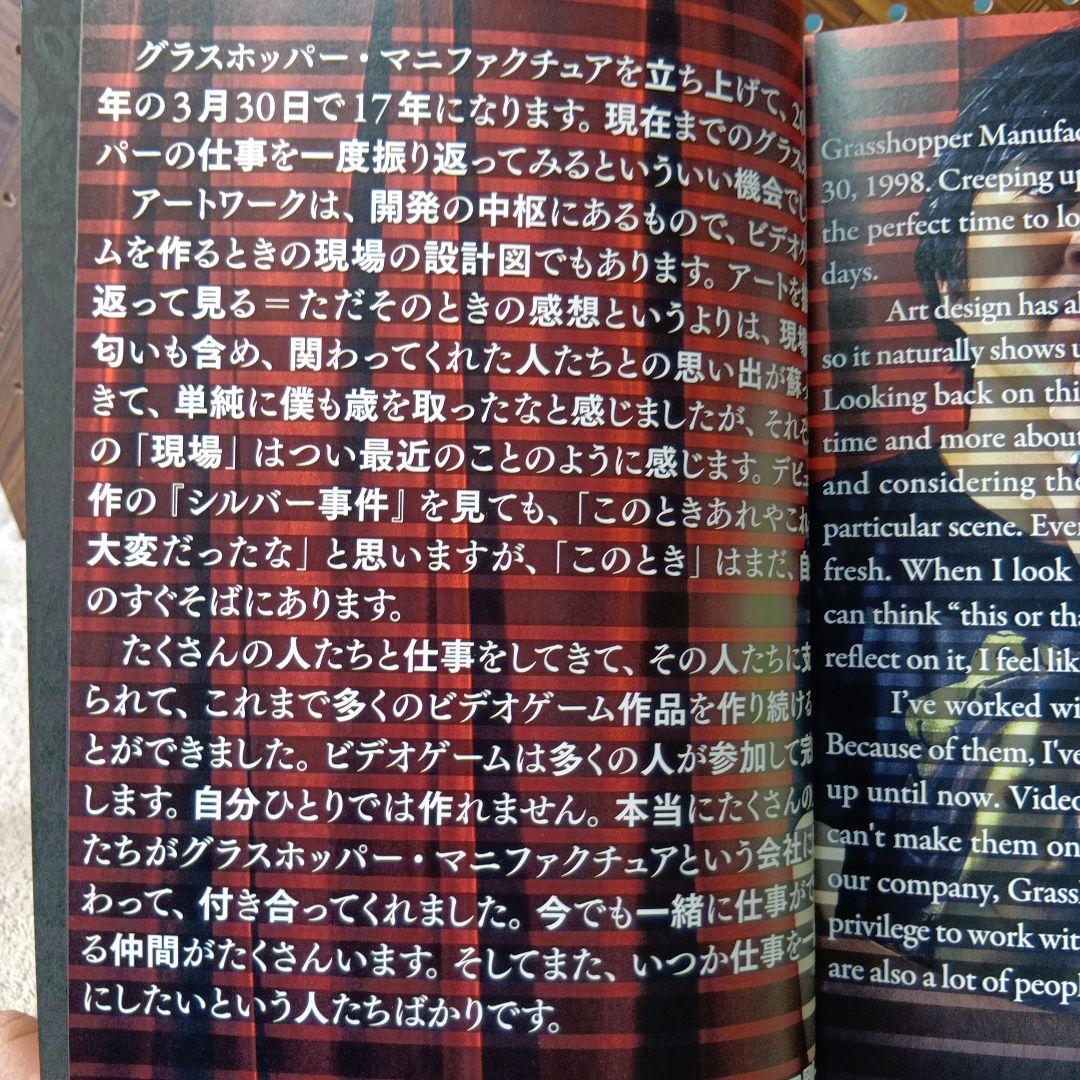 グラスホッパー・マニファクチュアを立ち上げて、20
年の3月30日で17年になります。現在までのグラス
パーの仕事を一度振り返ってみるといういい機会でし
アートワークは、開発の中枢にあるもので、ビデオゲ
ムを作るときの現場の設計図でもあります。アートを
返って見る＝ただそのときの感想というよりは、現場
匂いも含め、関わってくれた人たちとの思い出が蘇っ
きて、単純に僕も歳を取ったなと感じましたが、それぞ
の「現場」はつい最近のことのように感じます。デビュ
作の『シルバー事件』を見ても、「このときあれやこれ
大変だったな」と思いますが、「このとき」はまだ、自
のすぐそばにあります。
たくさんの人たちと仕事をしてきて、その人たちに支
られて、これまで多くのビデオゲーム作品を作り続ける
とができました。ビデオゲームは多くの人が参加して完
します。自分ひとりでは作れません。本当にたくさんの
たちがグラスホッパー・マニファクチュアという会社に
わって、付き合ってくれました。今でも一緒に仕事がで
る仲間がたくさんいます。そしてまた、いつか仕事を一
にしたいという人たちばかりです。
Grasshopper Manufac
30, 1998. Creeping up
the perfect time to lo
days.
Art design has al
so it naturally shows u
Looking back on thi
time and more about
and considering the
particular scene. Eve
fresh. When I look
can think “this or tha
reflect on it, I feel lik
I've worked wi
Because of them, I've
up until now. Video
can't make them on
our company, Grass
privilege to work wit
are also a lot of peopl